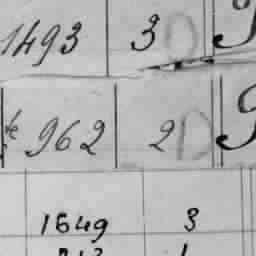 1493 30
962 20
1649 3